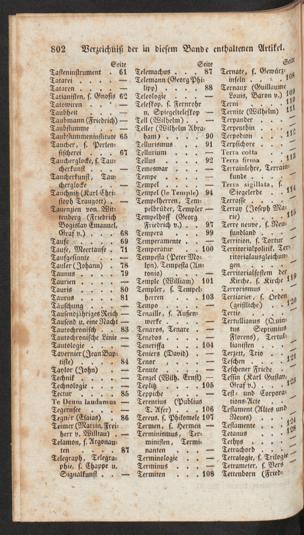 802 Verzeichniß der in diesem Bande enthaltenen Artikel.
Seite
Tasteninstrument . 61
Tatarei . . . —
Tataren . . . —
Tatianisten, s. Gnosis 62
Tatowiren . . —
Taubheit . . —
Taubmann (Friedrich) —
Taubstumme . . —
Taubstummeninstitute 65
Taucher, s. Perlen-
fischerei . . 67
Taucherglocke, s. Tau-
cherkunst . . —
Taucherkunst, Tau-
cherglocke . —
Tauchnitz (Karl Chri-
stoph Traugott) . —
Tauenzien von Wit-
tenberg (Friedrich
Bogislav Emanuel,
Graf v.) . . 68
Taufe . . . 69
Taufe, Meertaufe . 71
Taufgesinnte . —
Tauler (Johann) . 78
Taunus . . . 79
Taurien . . . —
Tauris . . . 80
Taurus . . . 81
Täuschung . . —
Tausendjähriges Reich —
Tausend u. eine Nacht —
Tautochronisch . 83
Tautochronische Linie —
Tautologie . . —
Tavernier (Jean Bap-
tiste) . . . 84
Taylor (John) . —
Technik . . . —
Technologie . . —
Tectur . . . 85
Te Deum laudamus —
Tegernsee . . —
Tegnér (Esaias) . 86
Teimer (Martin, Frei-
herr v. Wiltau) —
Telamon, s. Argonau-
ten . . . 87
Telegraph, Telegra-
phie, s. Chappe u.
Signalkunst . —
Seite
Telemachus . . 87
Telemann (Georg Phi-
lipp) . . . 88
Teleologie . . —
Teleskop, s. Fernrohr
u. Spiegelteleskop —
Tell (Wilhelm) . —
Teller (Wilhelm Abra-
ham) . . . 90
Tellurismus . . 91
Tellurium . . —
Tellus . . . 92
Temeswar . . —
Tempe . . . —
Tempel . . . —
Tempel (Le Temple) 94
Tempelherren, Tem-
pelbrüder, Templer —
Tempelhoff (Georg
Friedrich v.) . 97
Tempera . . . 99
Temperament . —
Temperatur . . 100
Tempesta (Peter Mo-
lyn), Tempesta (An-
tonio) . . . —
Temple (William) 101
Templer, s. Tempel-
herren . . . 103
Tempo . . . —
Tenaille, s. Außen-
werke . . . —
Tenared, Tenare . —
Tenedos . . . —
Teneriffa . . 104
Teniers (David) . —
Tenor . . . —
Tenute . . . —
Tenzel (Wilh. Ernst) —
Teplitz . . . 105
Teppiche . . —
Terentius (Publius
T. Afer) . . 106
Teresa, s. Philomele 107
Termen, s. Hermen —
Terminismus, Ter-
ministen, Termi-
nanten . . —
Terminologie . —
Terminus . . —
Termiten . . 108
Seite
Ternate, s. Gewürz-
inseln . . . 108
Ternaux (Guillaume
Louis, Baron v.) 109
Terni . . . 110
Ternite (Wilhelm) 111
Terpander . . —
Terpenthin . . —
Terpodion . . 112
Terpsichore . . —
Terra cotta . . —
Terra firma . . 113
Terrainlehre, Terrain-
kunde . . —
Terra sigillata, s.
Siegelerde . 114
Terrasse . . —
Terray (Joseph Ma-
rie) . . . 115
Terre neuve, s. Neu-
fundland . . —
Terrinien, s. Tortur —
Territorialpolitik, Ter-
ritorialausgleichun-
gen . . . —
Territorialsystem der
Kirche, s. Kirche 119
Terrorismus . —
Tertiarier, s. Orden
(geistliche) . —
Tertie . . . —
Tertullianus (Quin-
tus Septimius
Florens), Tertul-
lianisten . . —
Terzett, Trio . —
Teschen . . 121
Teschener Friede —
Tessin (Karl Gustav,
Graf v.) . . 123
Test- und Corpora-
tions-Acte . —
Testament (Altes und
Neues) . . —
Testamente . . 124
Tetanus . . 128
Tethys . . . —
Tetrachord . . —
Tetralogie, s. Trilogie —
Tetrameter, s. Vers —
Tettenborn (Fried-